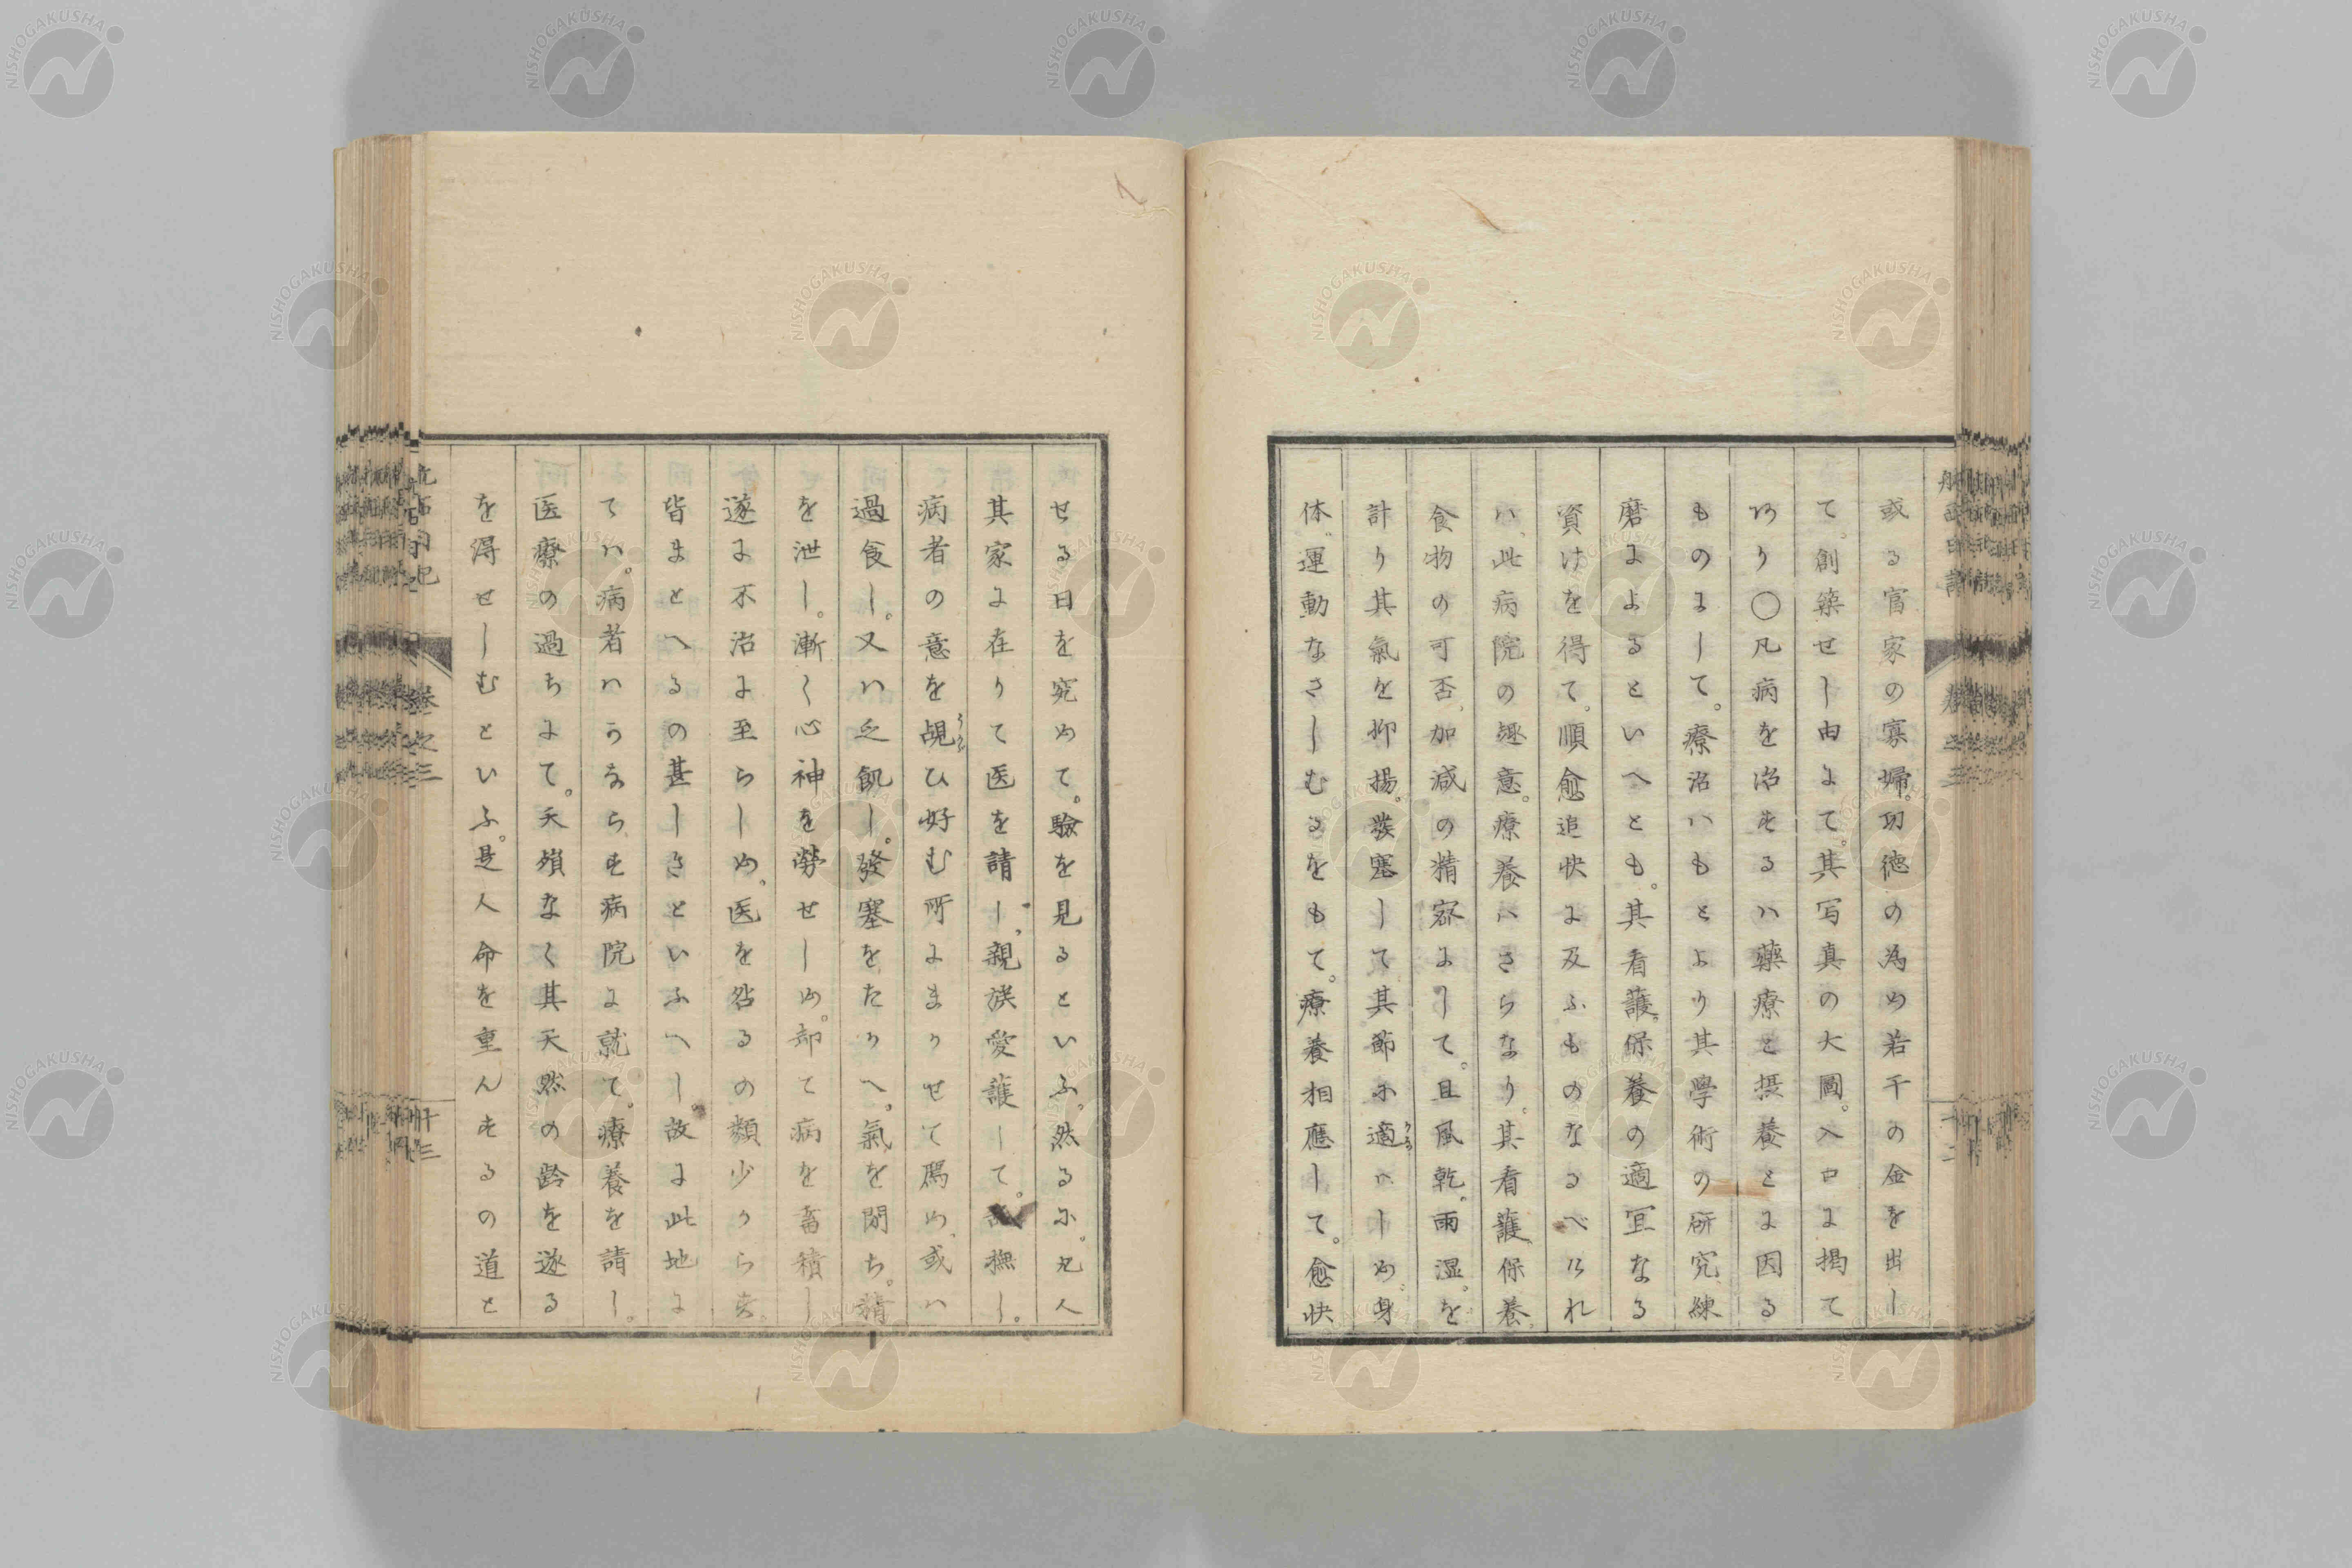 或る官家の寡婦。功徳の為め若干の金を出し
て。創築せし由にて。其写真の大圖。入口に掲て
あり〇凡病を治するハ藥療と摂養とに因る
ものにして。療治ハもとより其學術の研究練
磨によるといへとも。其看護。保養の適宜なる
資けを得て。順愈追快に及ふものなるべけれ
ハ、此病院の趣意。療養ハさらなり。其看護保養、
食物の可否、加減の精察にして。且風乾。雨湿。を
計り其氣を抑揚。發塞して其節に適ハしめ。身
体。運動なさしむるをもて。療養相應して。愈快
せる日を究めて。驗を見るといふ。然るに。凡人
其家に在りて医を請し、親族愛護して。撫し。
病者の意を覘ひ好む所にまかせて為め、或ハ
過食し。又ハ乏飢し。發塞をたかへ。氣を閉ち。精
を泄し。漸く心神を勞せしめ。却て病を蓄積し
遂に不治に至らしめ。医を咎るの類少からす。
皆まとへるの甚しきといふへし。故に此地に
てハ。病者ハかならす病院に就て。療養を請し。
医療の過ちにて。夭殞なく其天然の齢を遂る
を得せしむといふ。是人命を重んするの道と
航西日記
巻之三
廿三
NISHOGAKUSHA